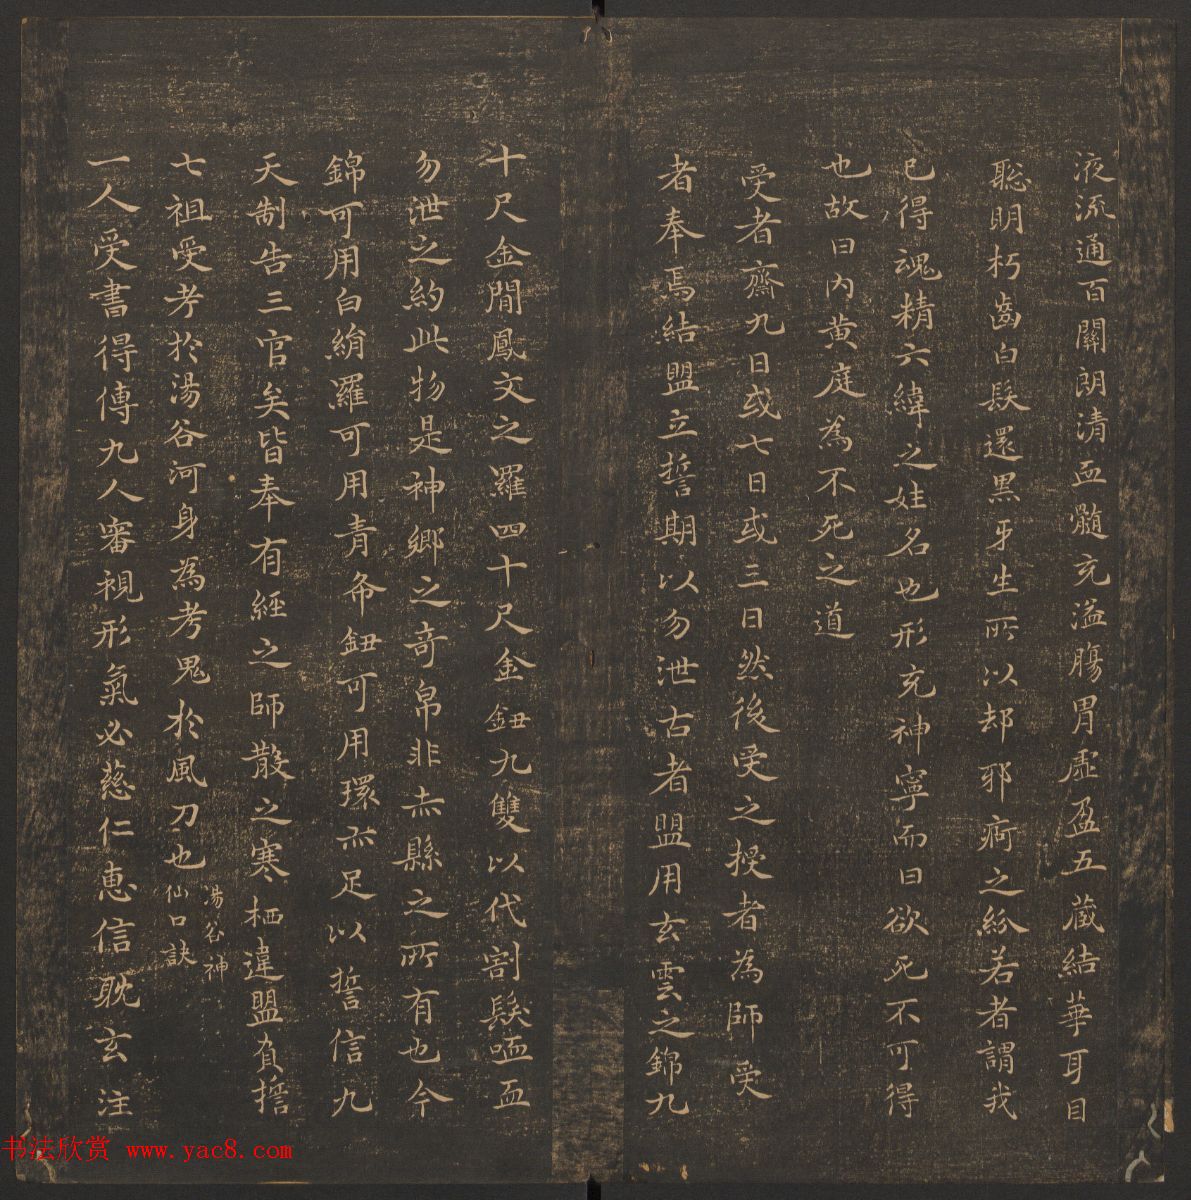 液流通百關朗清血髓充溢膓胃虛盈五藏結華耳目
聡明朽齒白髮還黒牙生所以却邪痾之紛若者謂我
已得魂精六緯之姓名也形充神寧而曰欲死不可得
也故曰内黄庭為不死之道
受者齋九日或七日或三日然後受之授者為師受
者奉焉結盟立誓期以勿泄古者盟用玄雲之錦九
十尺金閒鳳文之羅四十尺金鈕九雙以代割髮歃血
勿泄之約此物是神鄉之奇帛非赤縣之所有也今
錦可用白絹羅可用青布鈕可用環亦足以誓信九
天制告三官矣皆奉有經之師散之寒栖違盟負擔
七祖受考於湯谷河身為考鬼於風刀也湯谷神仙口訣
一人受書得傳九人審視形氣必慈仁惠信耽玄注
书法欣赏 www.yac8.com